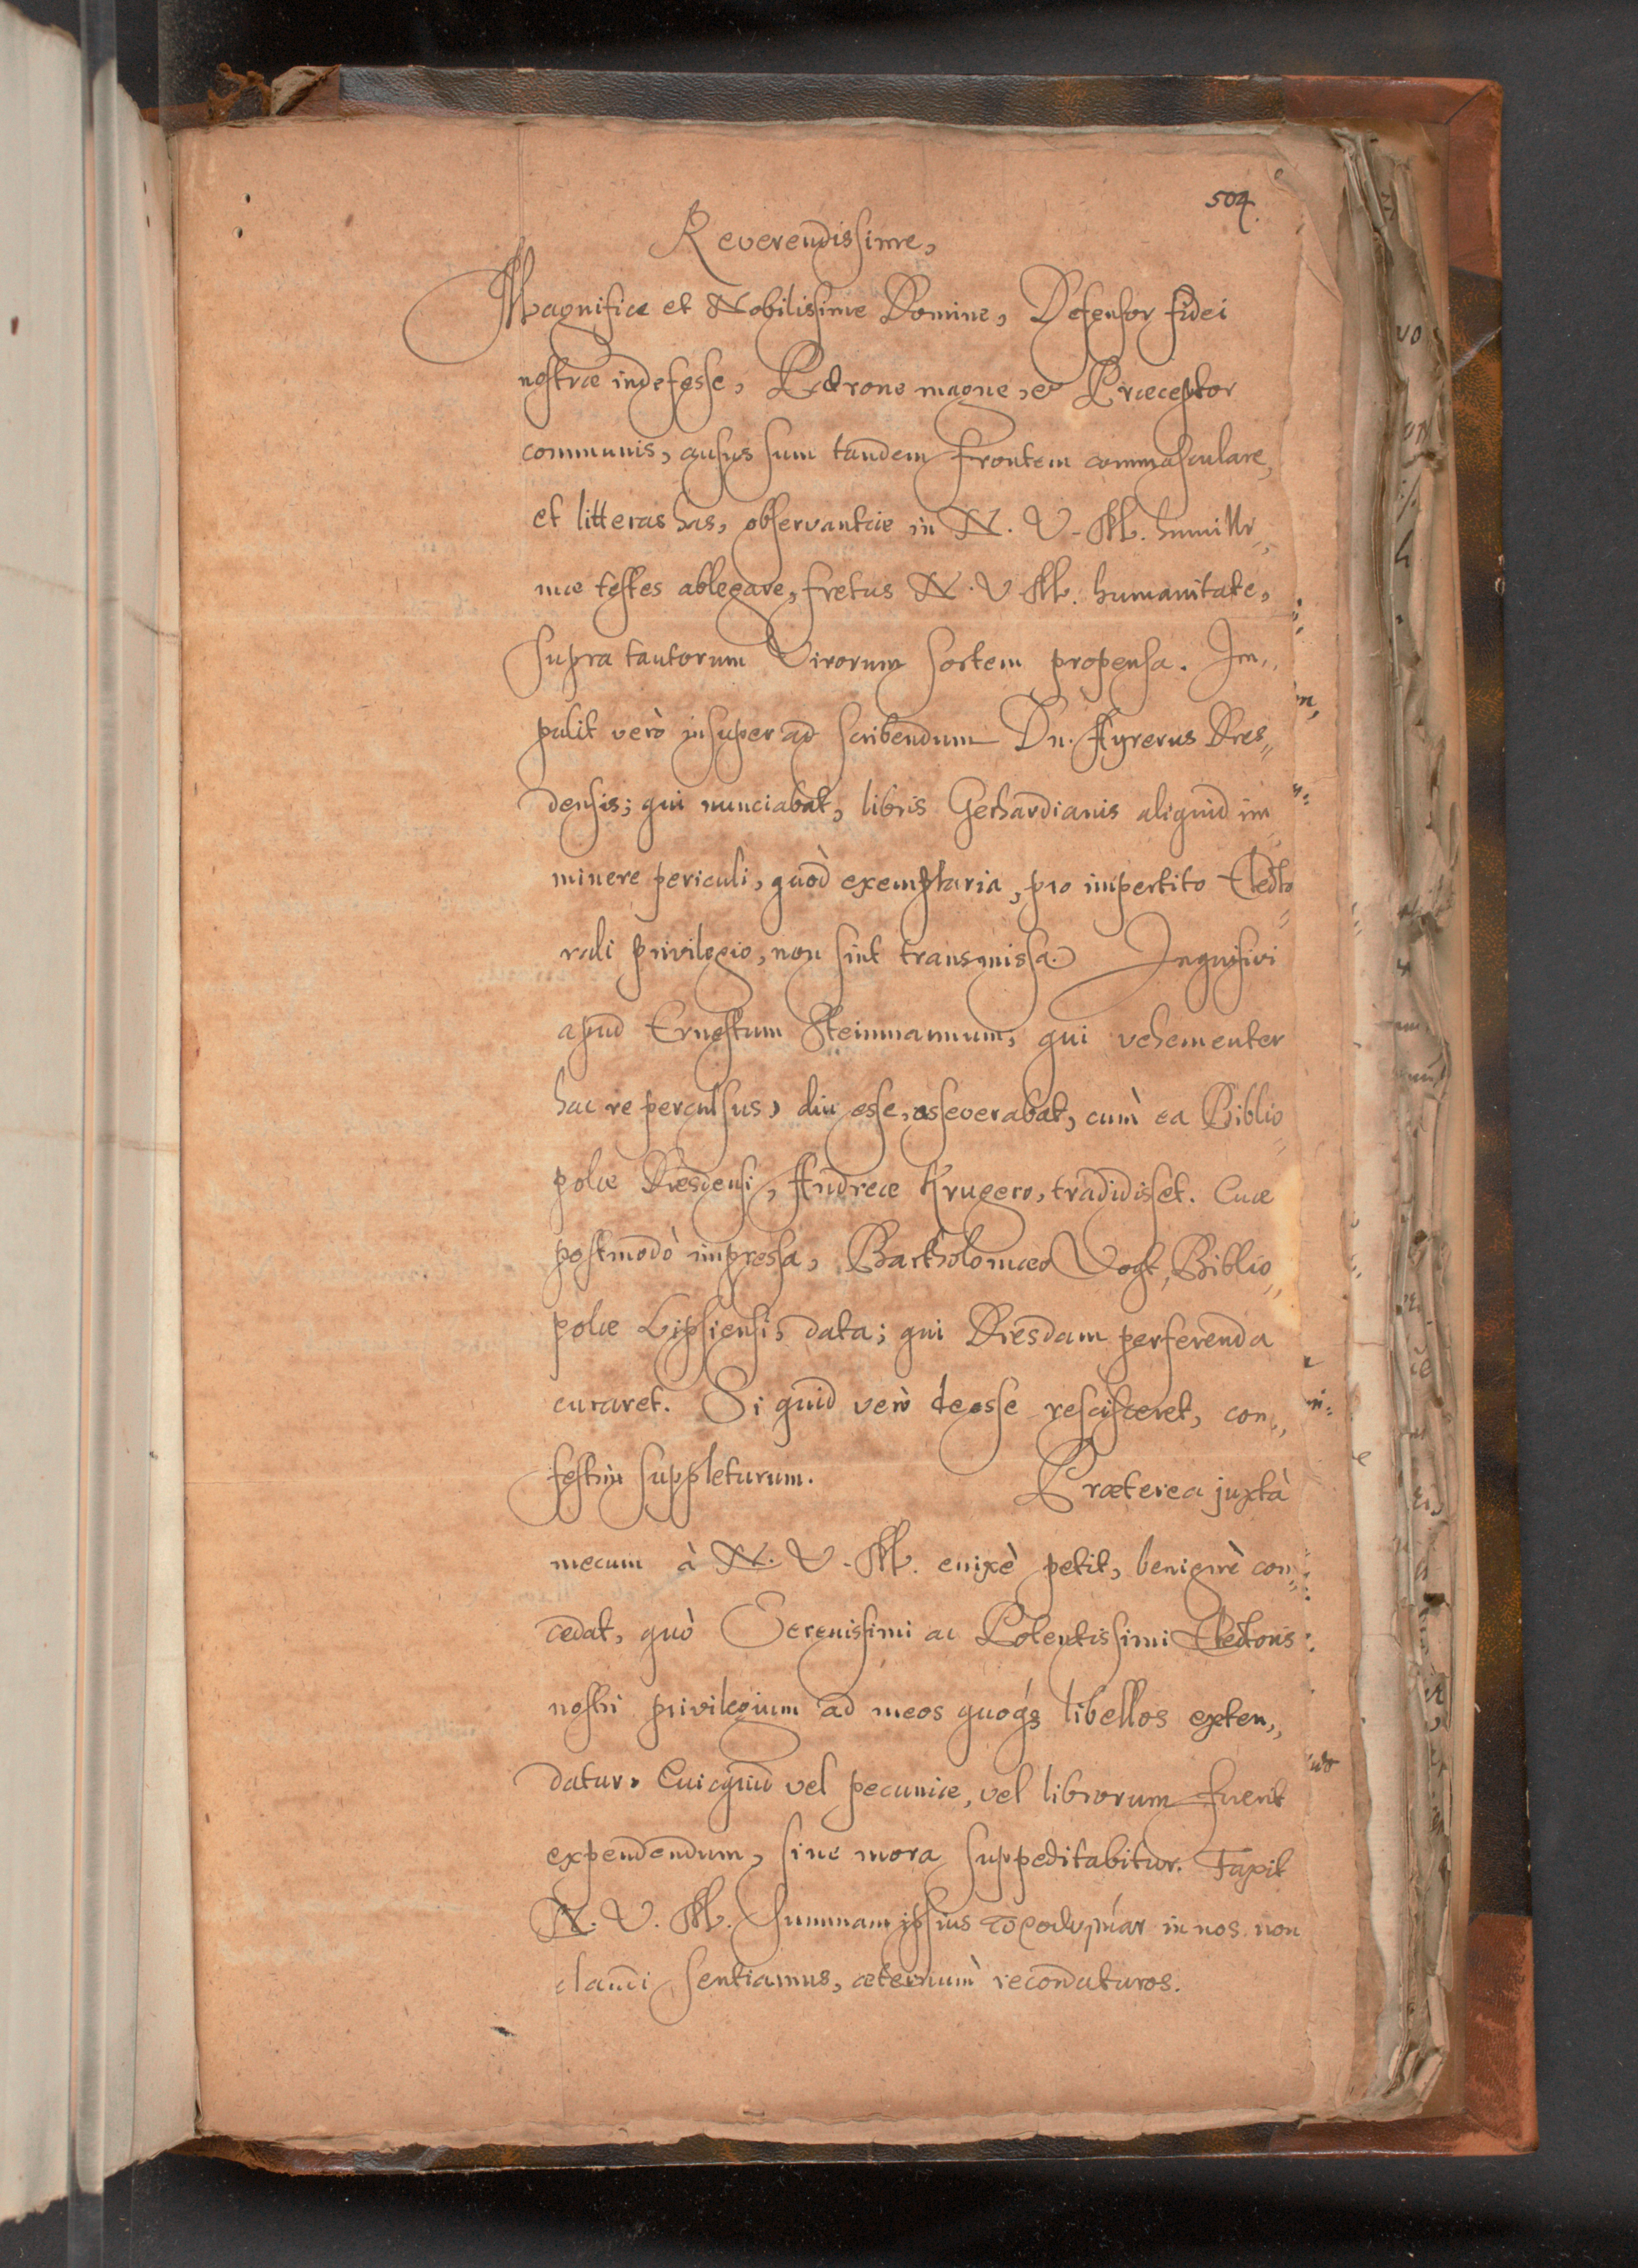 504.
Reverendissime,
Magnifice et Nobilissime Domine, Defensor fidei
nostræ indefesse, Patrone magne, et Præceptor
communis, ausus sum tandem frontem commasculare,
et litteras has, observantiæ in N. V. M. humilli,,
mæ testes ablegare, fretus N. V. M. humanitate,
supra tantorum Virorum sortem propensa. Im,,
pulit verò insuper ad scribendum Dn. Ayrerus Dres,,
densis; qui nunciabat, libris Gerhardianis aliquid im
minere periculi, quòd exemplaria, pro impertito Electo
rali privilegio, non sint transmissa. Inquisivi
apud Ernestum Steinmannum, qui vehementer
hac re perculsus, diu esse, asseverabat, cum ea Biblio
polæ Dresdensi, Andreæ Krugero, tradidisset. Quæ
postmodò impressa, Bartholomæo Vogt, Biblio,,
polæ Lipsiensis data; qui Dresdam perferenda
curaret. Si quid verò deesse rescisceret, con,,
festim suppleturum. Præterea juxtà
mecum à N. V. M. enixè petit, benignè con
cedat, quò Serenissimi ac Potentissimi Electoris
nostri privilegium ad meos quoq; libellos exten,,
datur. Quicquid vel pecuniæ, vel librorum fuerit
expendendum, sine mora suppeditabitur. Faxit
N. V. M. summam ipsius in nos non
claudi sentiamus, æternum recordaturos.